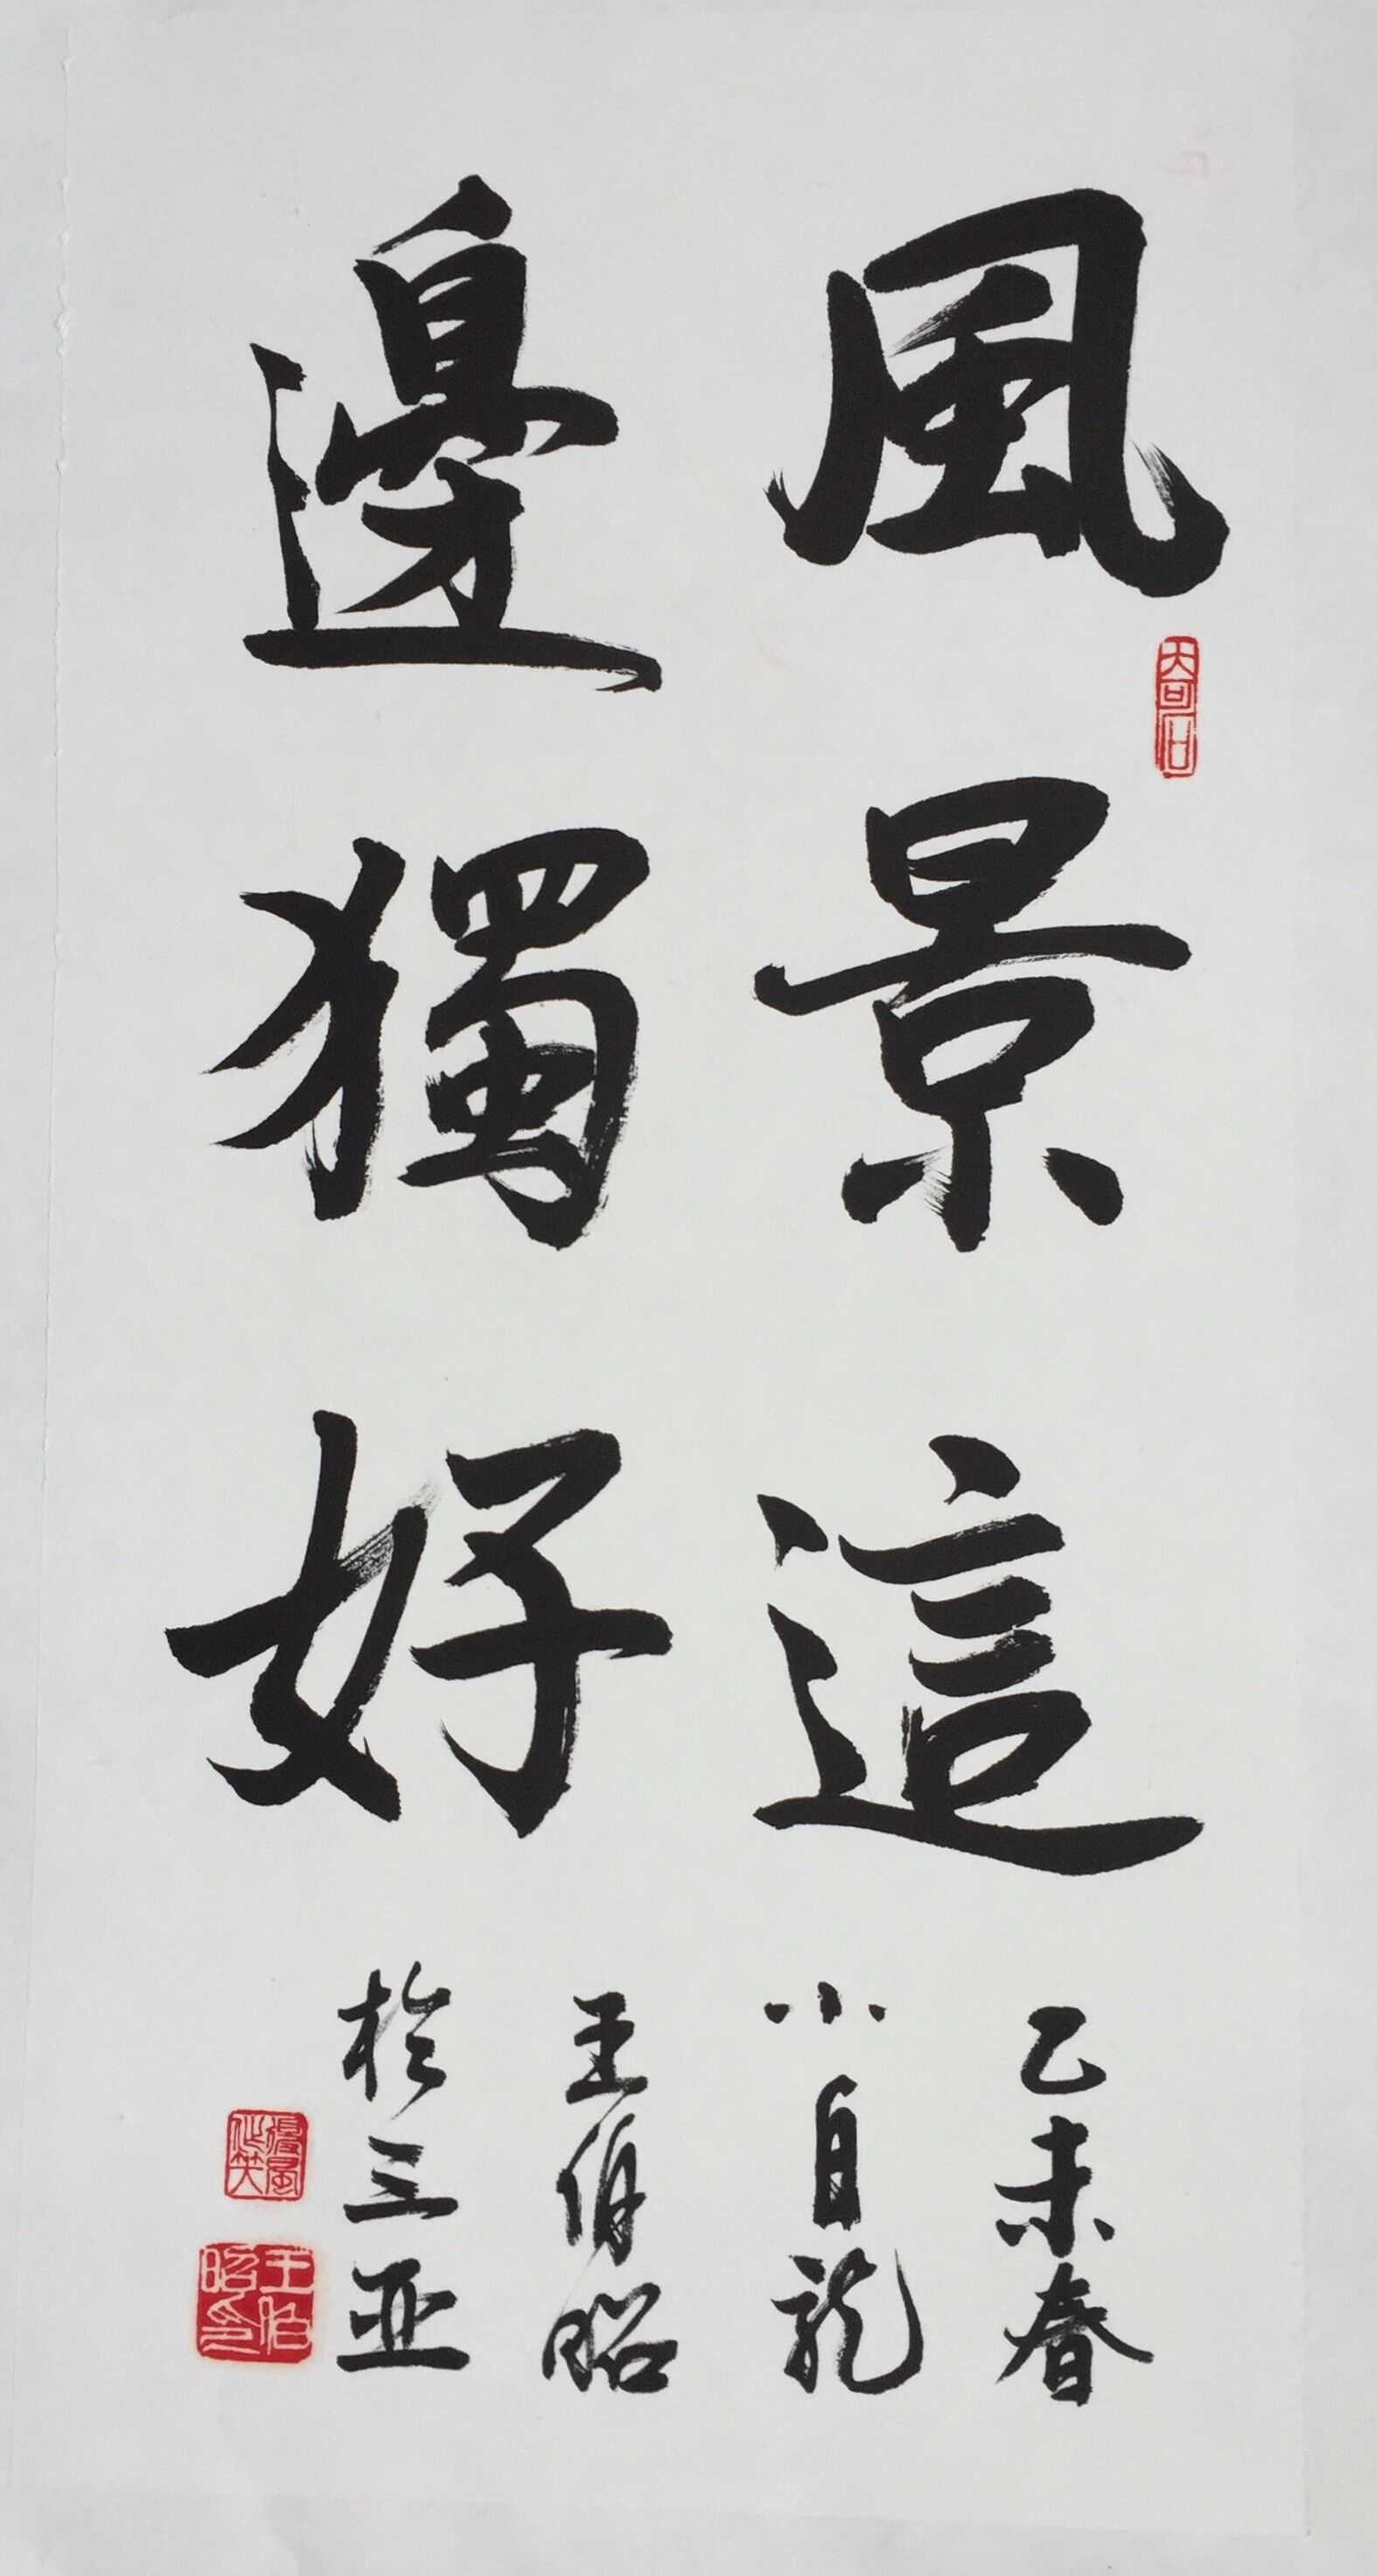 風景這
邊獨好
乙未春
小白龍
王伯昭
於三亚
王伯昭印